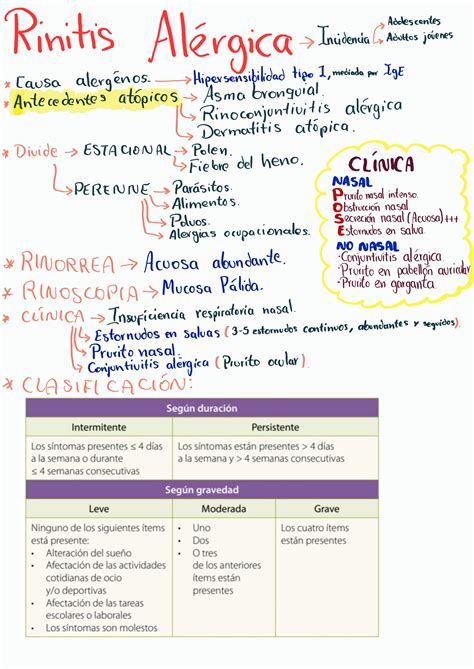 Rinitis Alérgica → Incidencia
Adolescentes
Adultos jóvenes
* Causa alergénos. → Hipersensibilidad tipo I, mediada por IgE
* Antecedentes atópicos → Asma bronquial.
→ Rinoconjuntivitis alérgica
→ Dermatitis atópica.
* Divide → ESTACIONAL → Polen.
→ Fiebre del heno.
→ PERENNE → Parásitos.
→ Alimentos.
→ Polvos.
→ Alergias ocupacionales.
CLÍNICA
NASAL
Prurito nasal intenso.
Obstrucción nasal.
Secreción nasal (Acuosa)+++
Estornudos en salva.
NO NASAL
· Conjuntivitis alérgica.
· Prurito en pabellón auricular
· Prurito en garganta.
* RINORREA → Acuosa abundante.
* RINOSCOPIA → Mucosa Pálida.
* CLÍNICA → Insuficiencia respiratoria nasal.
→ Estornudos en salvas (3-5 estornudos continuos, abundantes y seguidos).
→ Prurito nasal.
→ Conjuntivitis alérgica (Prurito ocular).
* CLASIFICACIÓN:
Según duración
Intermitente Persistente
Los síntomas presentes ≤ 4 días Los síntomas están presentes > 4 días
a la semana o durante a la semana y > 4 semanas consecutivas
≤ 4 semanas consecutivas
Según gravedad
Leve Moderada Grave
Ninguno de los siguientes ítems • Uno Los cuatro ítems
está presente: • Dos están presentes
• Alteración del sueño • O tres
• Afectación de las actividades de los anteriores
cotidianas de ocio ítems están
y/o deportivas presentes
• Afectación de las tareas
escolares o laborales
• Los síntomas son molestos